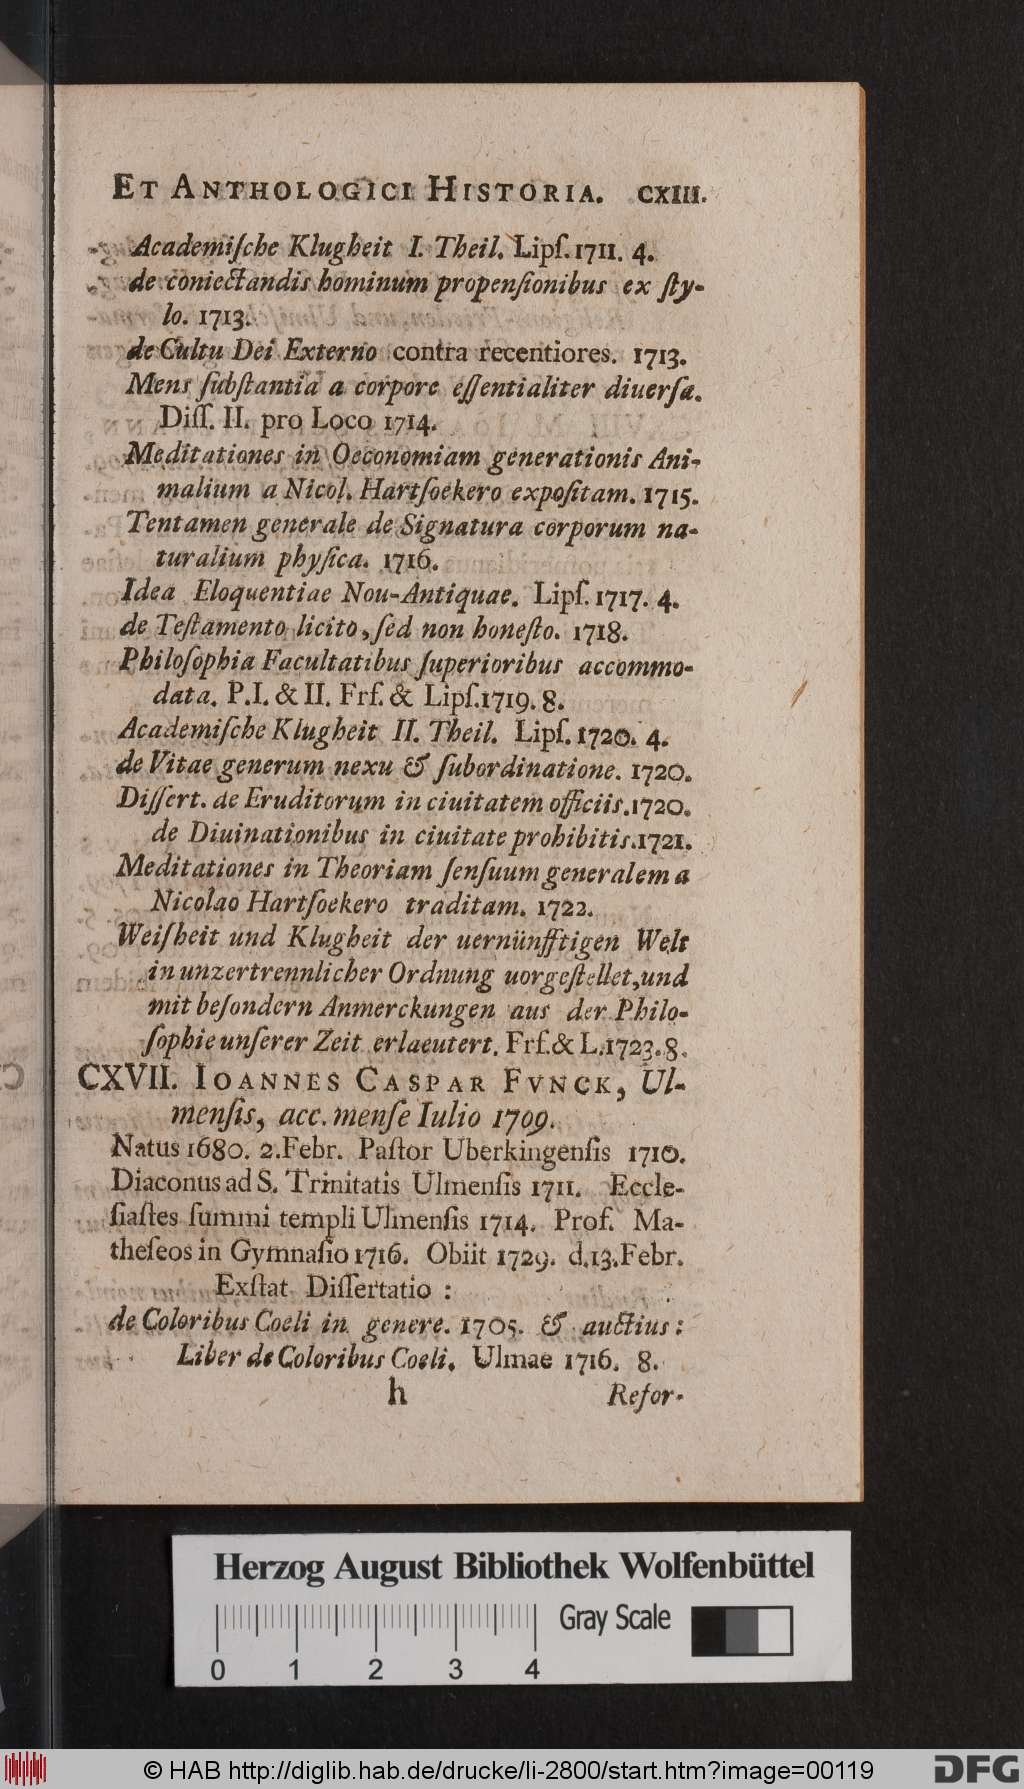 ET ANTHOLOGICI HISTORIA. CXIII.
Academiſche Klugheit I. Theil. Lipſ. 1711. 4.
de coniectandis hominum propenſionibus ex ſty-
lo. 1713.
de Cultu Dei Externo contra recentiores. 1713.
Mens ſubſtantia a corpore eſſentialiter diuerſa.
Diſſ. II. pro Loco 1714.
Meditationes in Oeconomiam generationis Ani-
malium a Nicol. Hartſoekero expoſitam. 1715.
Tentamen generale de Signatura corporum na-
turalium phyſica. 1716.
Idea Eloquentiae Nou-Antiquae. Lipſ. 1717. 4.
de Teſtamento licito, ſed non honeſto. 1718.
Philoſophia Facultatibus ſuperioribus accommo-
data. P.I. & II. Frf. & Lipſ. 1719. 8.
Academiſche Klugheit II. Theil. Lipſ. 1720. 4.
de Vitae generum nexu & ſubordinatione. 1720.
Diſſert. de Eruditorum in ciuitatem officiis. 1720.
de Diuinationibus in ciuitate prohibitis. 1721.
Meditationes in Theoriam ſenſuum generalem a
Nicolao Hartſoekero traditam. 1722.
Weiſheit und Klugheit der uernünfftigen Welt
in unzertrennlicher Ordnung uorgeſtellet, und
mit beſondern Anmerckungen aus der Philo-
ſophie unſerer Zeit erlaeutert. Frf. & L. 1723. 8.
CXVII. IOANNES CASPAR FVNCK, Ul-
menſis, acc. menſe Iulio 1709.
Natus 1680. 2. Febr. Paſtor Uberkingenſis 1710.
Diaconus ad S. Trinitatis Ulmenſis 1711. Eccle-
ſiaſtes ſummi templi Ulmenſis 1714. Prof. Ma-
theſeos in Gymnaſio 1716. Obiit 1729. d. 13. Febr.
Exſtat Diſſertatio :
de Coloribus Coeli in genere. 1705. & auctius :
Liber de Coloribus Coeli. Ulmae 1716. 8.
h Refor-
Herzog August Bibliothek Wolfenbüttel
Gray Scale
0 1 2 3 4
© HAB http://diglib.hab.de/drucke/li-2800/start.htm?image=00119
DFG